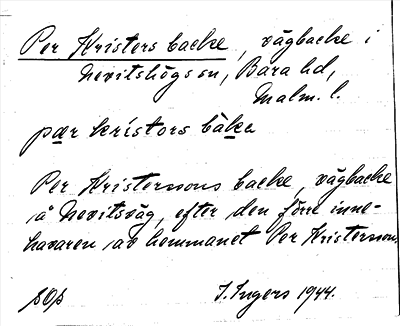 Per Kristers backe, vägbacke i
Nevitshögs sn, Bara hd,
Malm. l.
pær kristors bàka
Per Kristerssons backe, vägbacke
å Nevitsväg, efter den förre inne-
havaren av hemmanet Per Kristersson.
I. Ingers 1944.